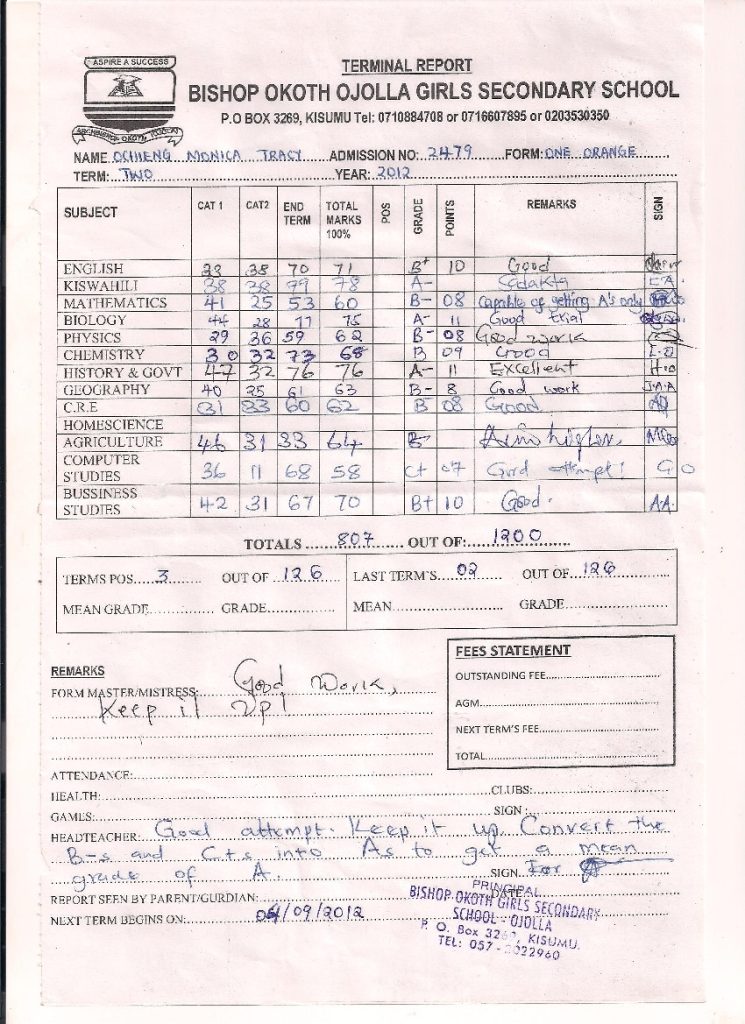 ASPIRE A SUCCESS
TERMINAL REPORT
BISHOP OKOTH OJOLLA GIRLS SECONDARY SCHOOL
P.O BOX 3269, KISUMU Tel: 0710884708 or 0716607895 or 0203530350
NAME OCHIENG MONICA TRACY ADMISSION NO: 2479 FORM: ONE ORANGE
TERM: TWO YEAR: 2012
SUBJECT CAT 1 CAT2 END TERM TOTAL MARKS 100% POS GRADE POINTS REMARKS SIGN
ENGLISH 38 70 71 B+ 10 Good
KISWAHILI 38 38 79 78 A- Sadakta E.A
MATHEMATICS 41 25 53 60 B- 08 Capable of getting A's only
BIOLOGY 44 28 77 75 A- 11 Good trial
PHYSICS 29 36 59 62 B- 08 Good work
CHEMISTRY 30 32 73 68 B 09 Good
HISTORY & GOVT 47 32 76 76 A- 11 Excellent H.O
GEOGRAPHY 40 25 61 63 B- 8 Good work J.A.A
C.R.E 31 33 60 62 B 08 Good
HOMESCIENCE
AGRICULTURE 46 31 33 64 B- Aim higher.
COMPUTER STUDIES 36 11 68 58 C+ 07 Good attempt! G O
BUSSINESS STUDIES 42 31 67 70 B+ 10 Good. A.A.
TOTALS 807 OUT OF: 1200
TERMS POS. 3 OUT OF 126 LAST TERM'S 02 OUT OF 126
MEAN GRADE GRADE MEAN GRADE
FEES STATEMENT
OUTSTANDING FEE
AGM
NEXT TERM'S FEE
TOTAL
REMARKS
FORM MASTER/MISTRESS: Good Work,
Keep it Up!
ATTENDANCE:
HEALTH: CLUBS:
GAMES: SIGN:
HEADTEACHER: Good attempt. Keep it up. Convert the
B-s and C+s into As to get a mean
grade of A. SIGN For
REPORT SEEN BY PARENT/GURDIAN: DATE
NEXT TERM BEGINS ON: 04/09/2012
PRINCIPAL
BISHOP OKOTH GIRLS SECONDARY
SCHOOL - OJOLLA
P. O. Box 3269, KISUMU.
TEL: 057 - 2022960